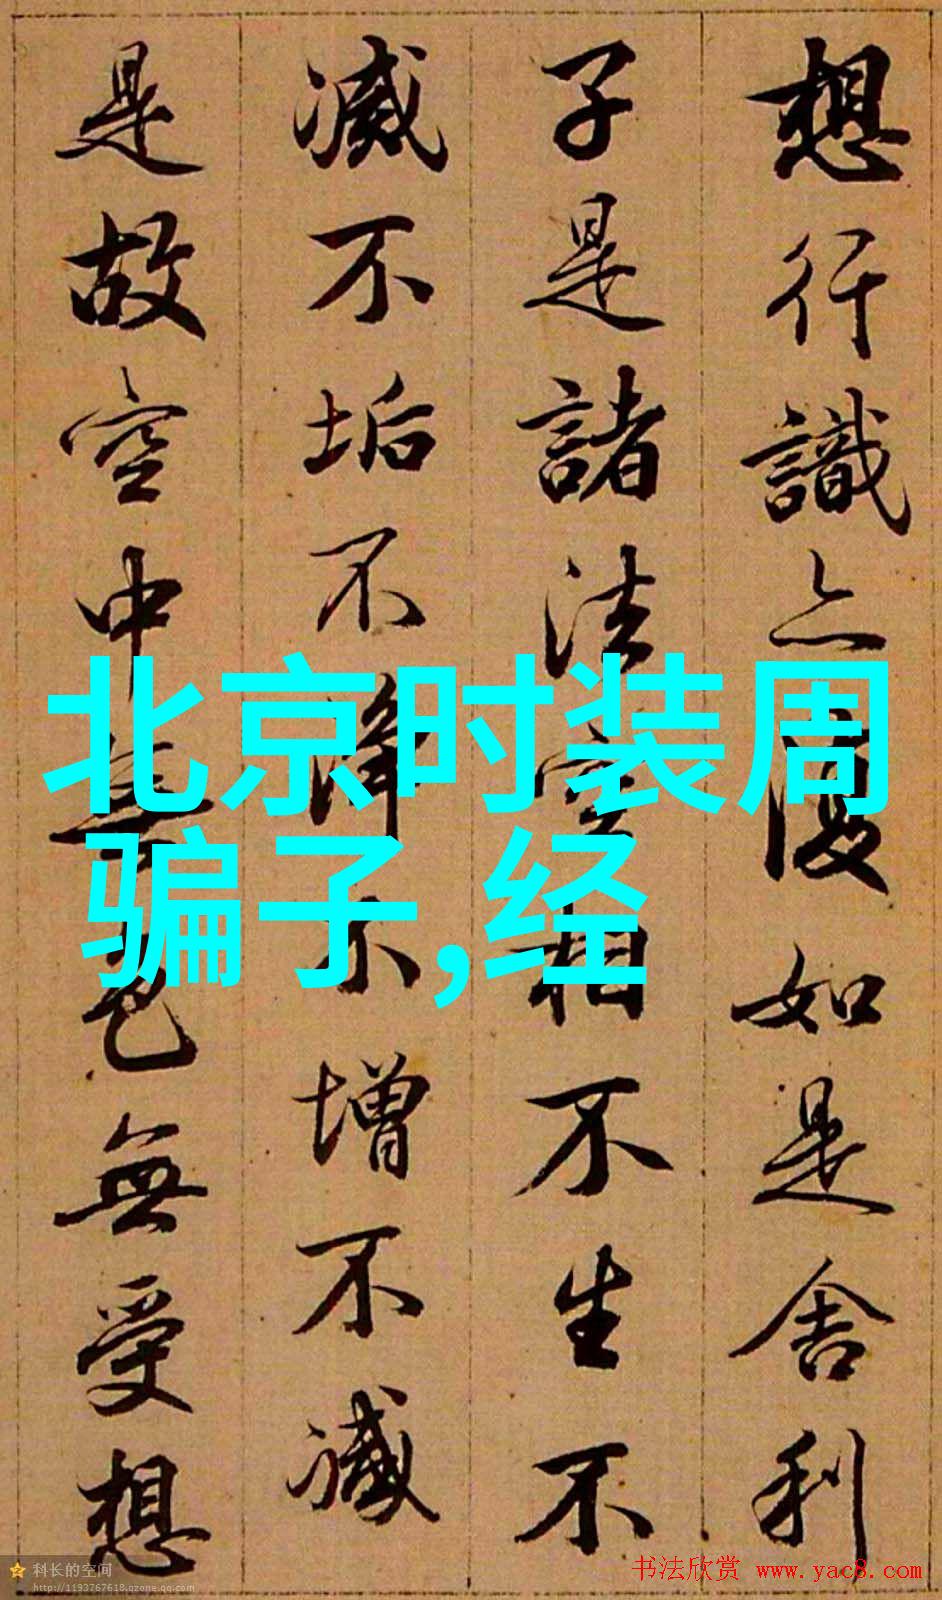 想行識亦復如是舍利
子是諸法空相不生不
滅不垢不淨不增不減
是故空中無色無受想
北京时装周
骗子,经
科长的空间
http://1193767618.qzone.qq.com
书法欣赏 www.yac8.com